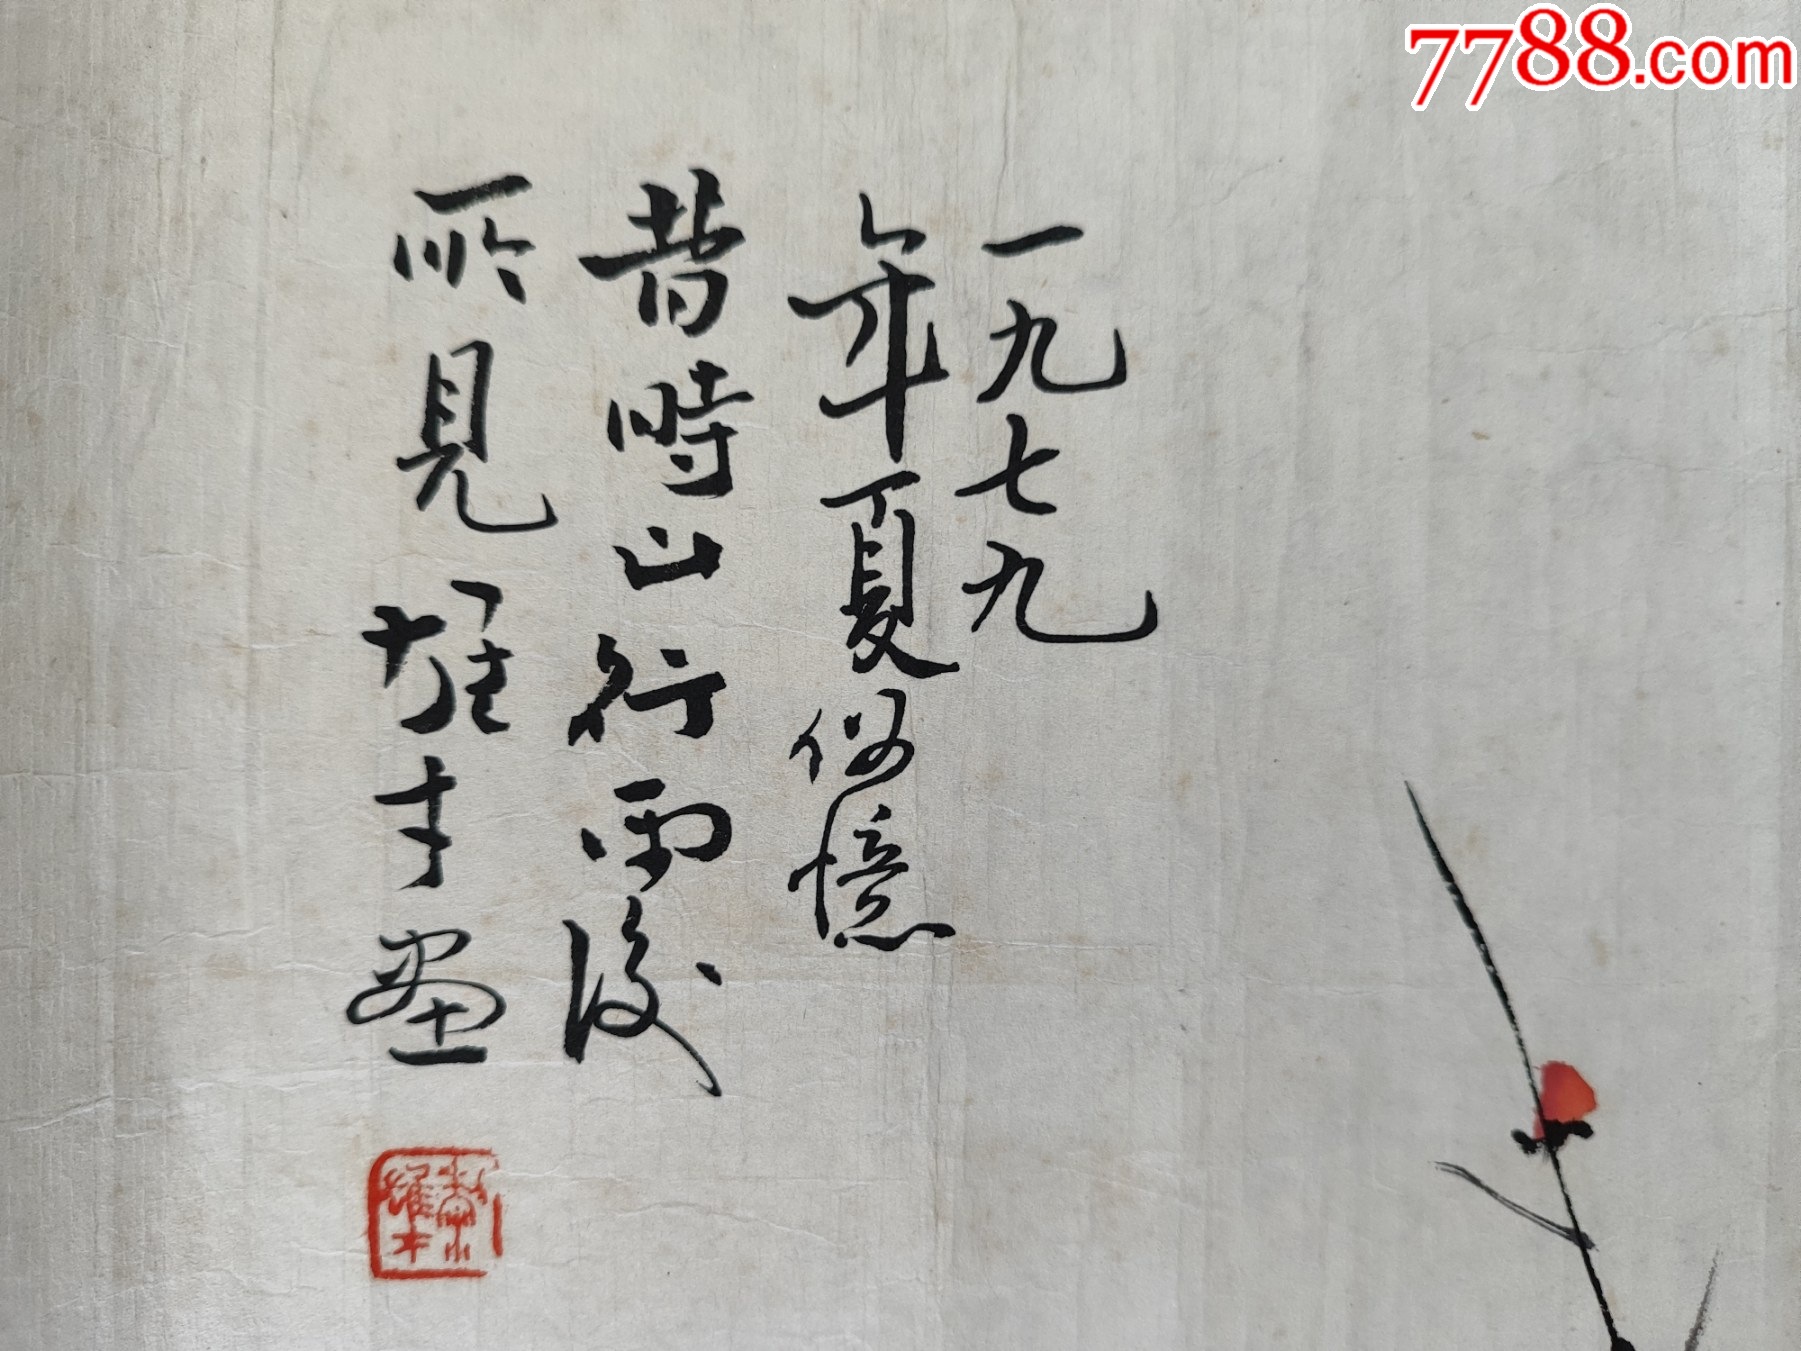 7788.com
一九七九
年夏偶憶
昔時山行雨後
所見雄才畫
黎雄才